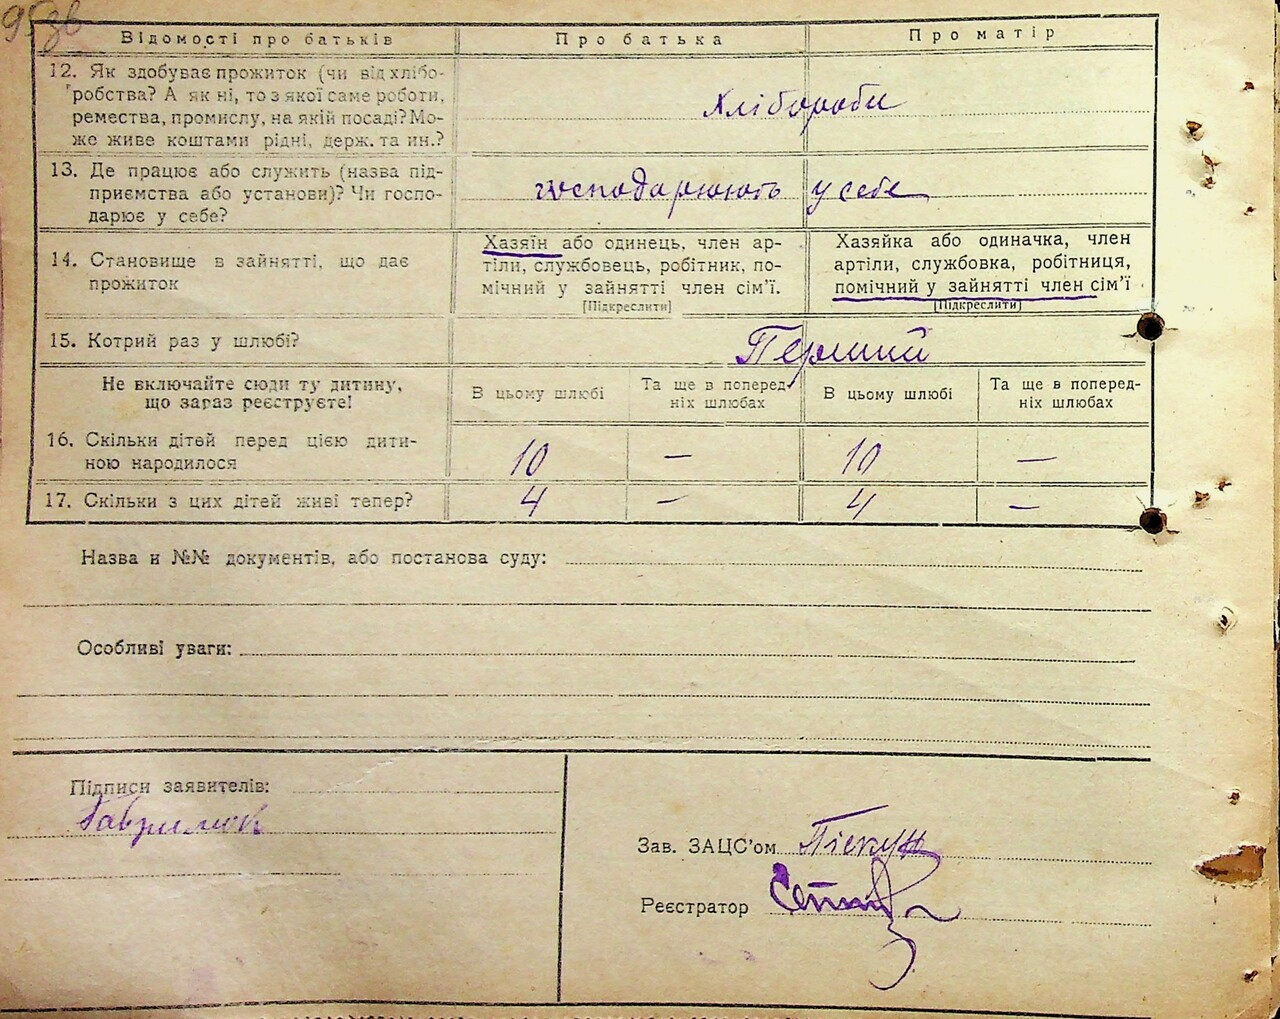 95зв
Відомості про батьків Про батька Про матір
12. Як здобуває прожиток (чи від хлібо-
робства? А як ні, то з якої саме роботи,
ремества, промислу, на якій посаді? Мо-
же живе коштами рідні, держ. та ин.?
Хлібороби
13. Де працює або служить (назва під-
приємства або установи)? Чи госпо-
дарює у себе?
господарюють у себе
14. Становище в зайнятті, що дає
прожиток
Хазяїн або одинець, член ар-
тіли, службовець, робітник, по-
мічний у зайнятті член сім’ї.
[Підкреслити]
Хазяйка або одиначка, член
артіли, службовка, робітниця,
помічний у зайнятті член сім’ї
[Підкреслити]
15. Котрий раз у шлюбі? Перший
Не включайте сюди ту дитину,
що зараз реєструєте!
В цьому шлюбі
Та ще в поперед-
ніх шлюбах
В цьому шлюбі
Та ще в поперед-
ніх шлюбах
16. Скільки дітей перед цією дити-
ною народилося
10 — 10 —
17. Скільки з цих дітей живі тепер? 4 — 4 —
Назва и №№ документів, або постанова суду:
Особливі уваги:
Підписи заявителів:
Гаврилюк
Зав. ЗАЦС’ом
Реєстратор